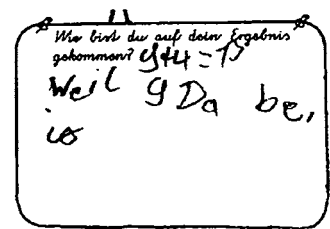 Wie bist du auf dein Ergebnis
gekommen? 9+4=13
Weil 9 Da be,
is